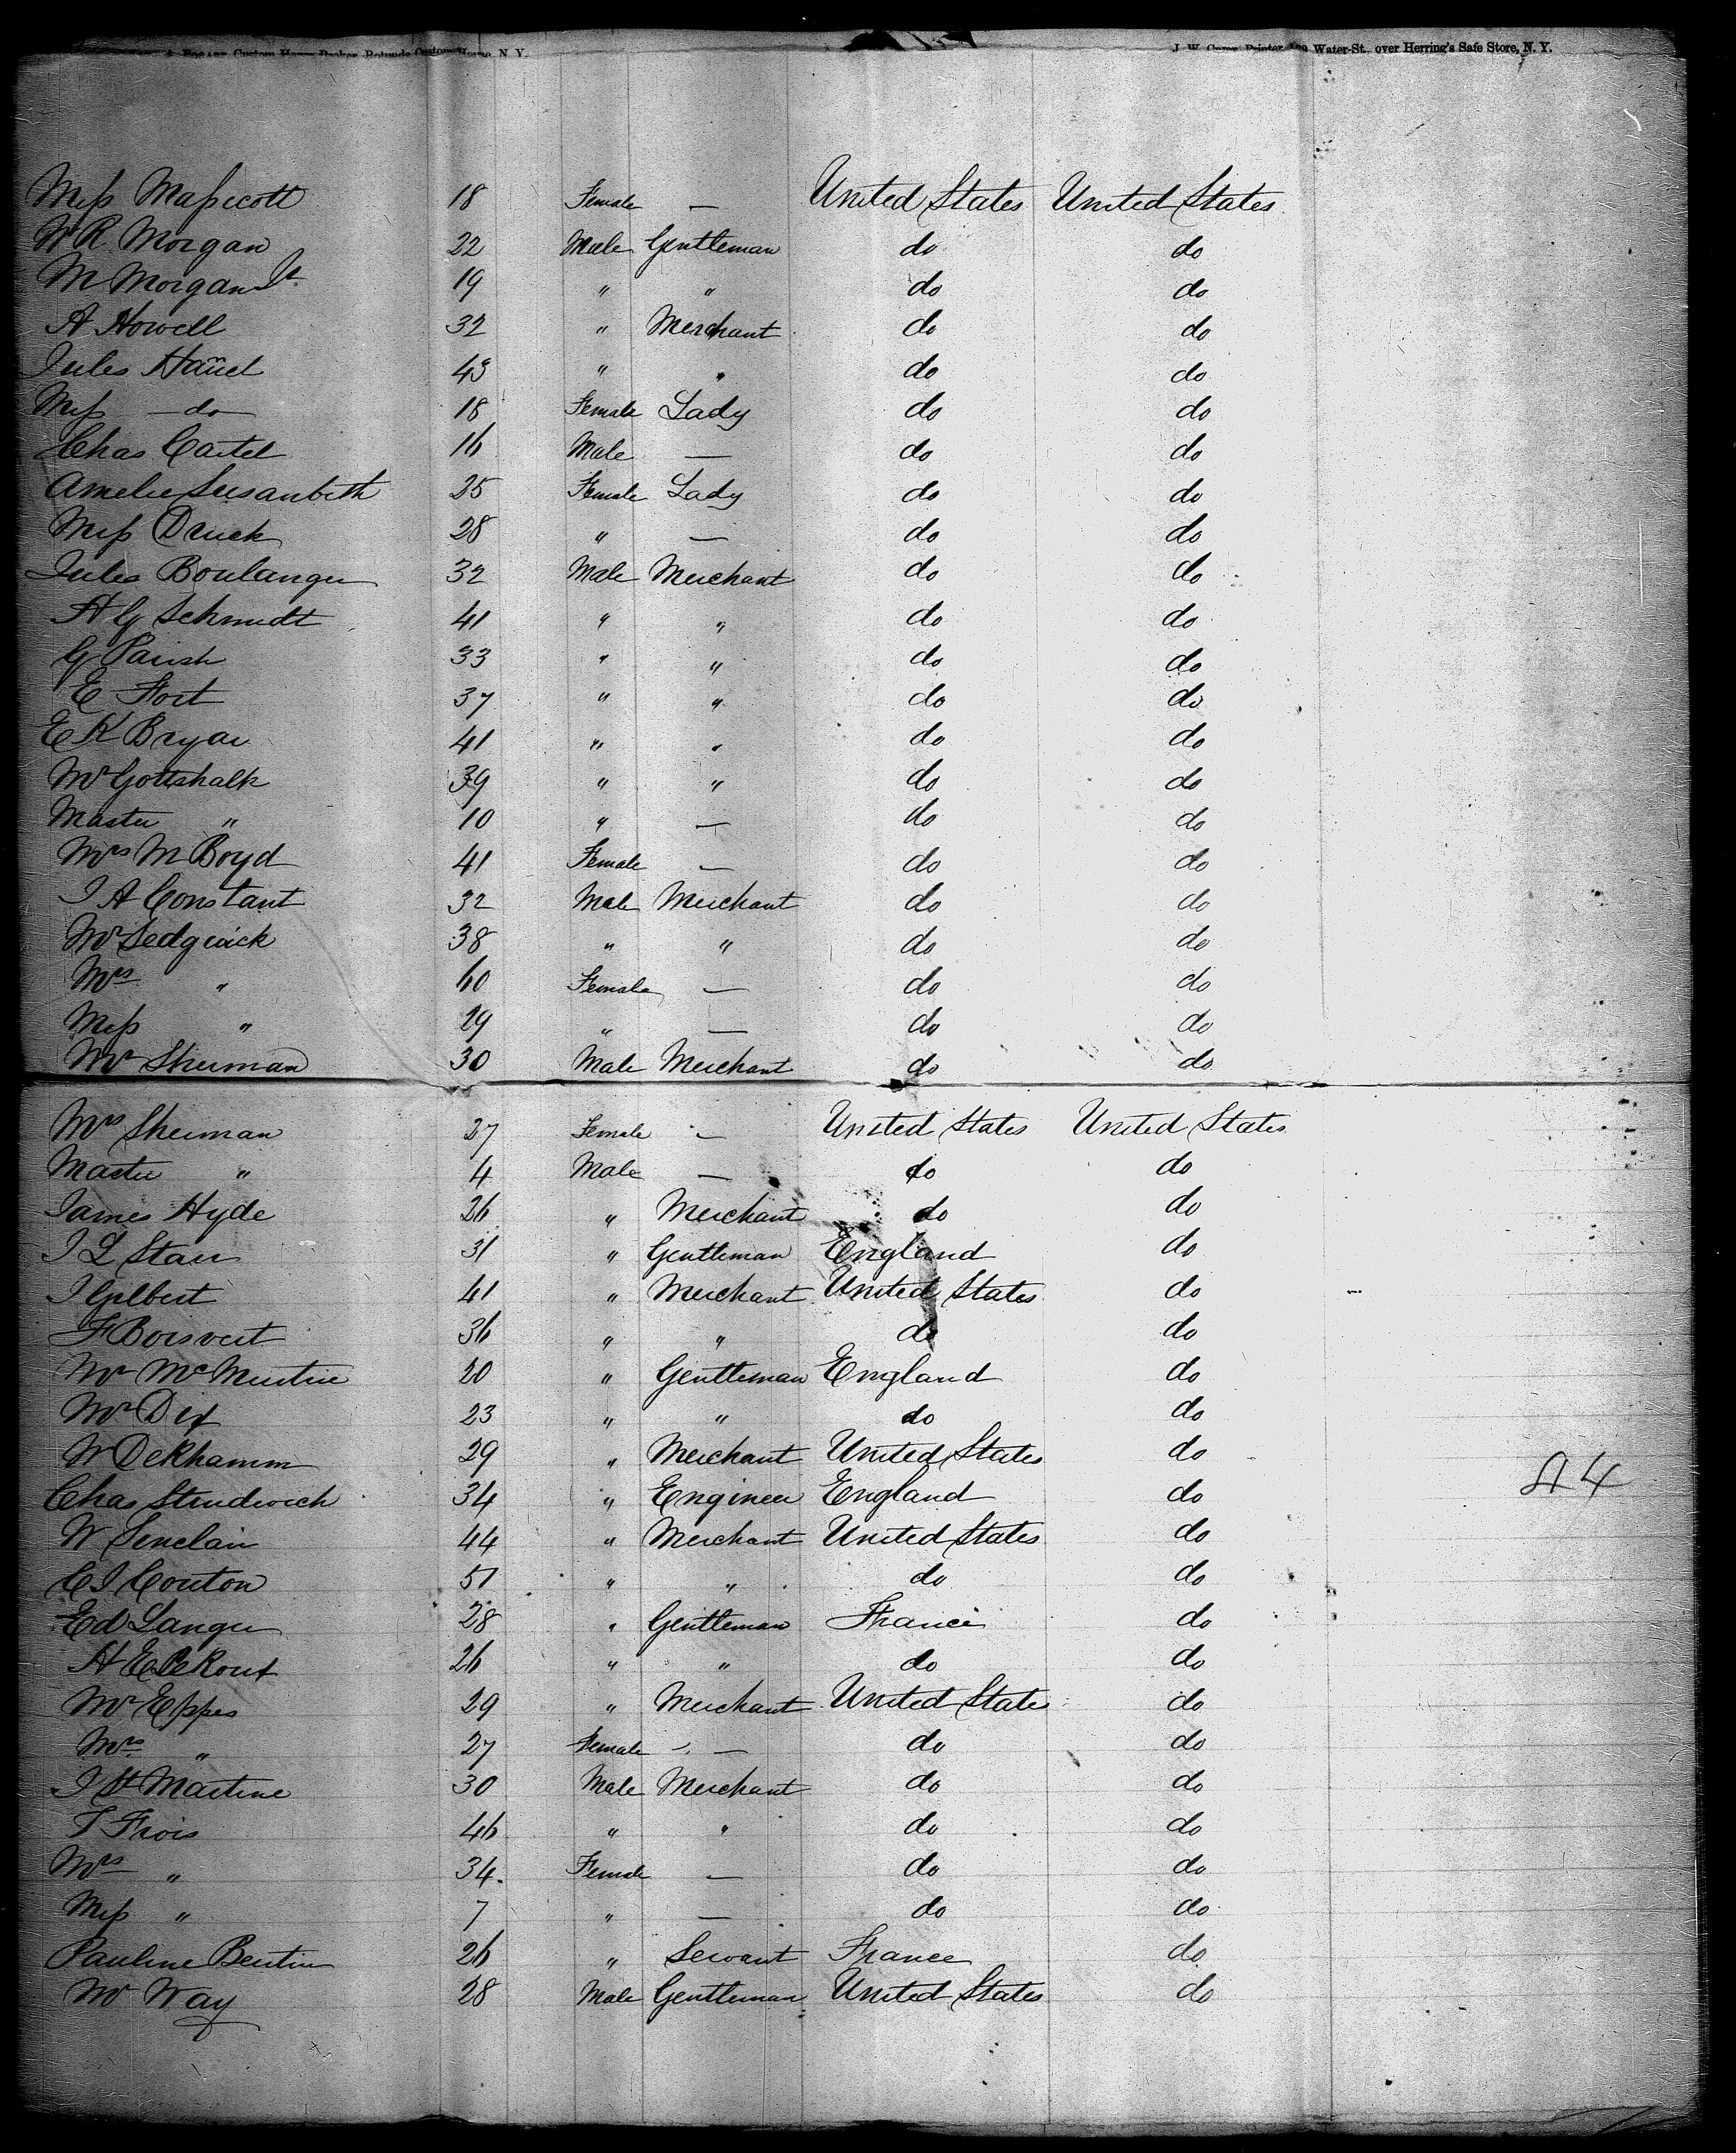 Custom House Broker, Rotunda Custom House, N. Y. J. W. Printer, Water-St., over Herring's Safe Store, N. Y.
Miss Massicott 18 Female — United States United States
W R Morgan 22 Male Gentleman do do
M Morgan Jr 19 " " do do
A Howell 32 " Merchant do do
Jules Hauel 43 " " do do
Miss —do— 18 Female Lady do do
Chas Cartel 16 Male — do do
Amelie Susanbeth 25 Female Lady do do
Miss Druck 28 " — do do
Jules Boulanger 32 Male Merchant do do
H G Schmidt 41 " " do do
G Parish 33 " " do do
E Fort 37 " " do do
E K Bryar 41 " " do do
Mr Gottshalk 39 " " do do
Master " 10 " — do do
Mrs M Boyd 41 Female — do do
J A Constant 32 Male Merchant do do
Mr Sedgwick 38 " " do do
Mrs " 60 Female — do do
Miss " 29 " — do do
Mr Sherman 30 Male Merchant do do
Mrs Sherman 27 Female — United States United States
Master " 4 Male — do do
James Hyde 26 " Merchant do do
J L Starr 31 " Gentleman England do
J Gilbert 41 " Merchant United States do
F Boisvert 36 " " do do
Mr McMurtrie 20 " Gentleman England do
Mr Dix 23 " " do do
W Dekhamm 29 " Merchant United States do
Chas Strudwich 34 " Engineer England do
A4
W Sinclair 44 " Merchant United States do
C J Couton 51 " " do do
Ed Langer 28 " Gentleman France do
H E 26 " " do do
Mr Eppes 29 " Merchant United States do
Mrs " 27 Female — do do
J St Martine 30 Male Merchant do do
T Frois 46 " " do do
Mrs " 34 Female — do do
Miss " 7 " — do do
Pauline Bertin 26 " Servant France do
Mr Way 28 Male Gentleman United States do